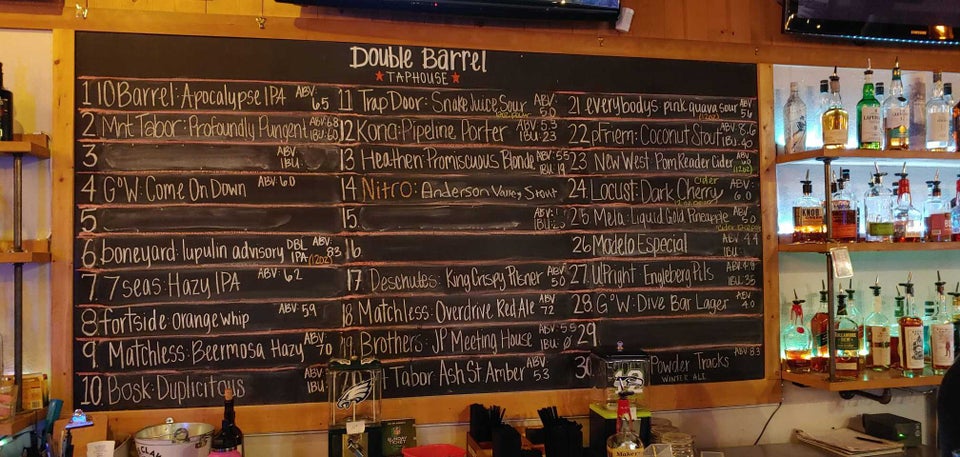 Double Barrel
★ TAPHOUSE ★
1 10 Barrel: Apocalypse IPA ABV: 65
2 Mnt Tabor: Profoundly Pungent ABV: 6.8 IBU: 60
3 ABV: IBU:
4 GºW: Come On Down ABV: 6.0
5
6 boneyard: lupulin advisory DBL IPA (12oz) ABV: 83
7 7 Seas: Hazy IPA ABV: 62
8 fortside orange whip ABV: 59
9 Matchless: Beermosa Hazy ABV: 70
10. Bosk: Duplicitous ABV: IBU:
11 Trap Door: Snake Juice Sour ABV: 5.0
12 Kona: Pipeline Porter ABV: 5.3 IBU: 23
13 Heathen: Promiscuous Blonde ABV: 55 IBU: 19
14 Nitro: Anderson Valley Stout
15. ABV: IBU:
16.
17 Deschutes: King Crispy Pilsner ABV: 50
18 Matchless: Overdrive Red Ale ABV: 72
19 Brothers: JP Meeting House ABV: 5.5 IBU:
Tabor: Ash St Amber ABV: 53
21 everybodys: pink guava sour ABV: 56
22 pFriem: Coconut Stout ABV: 8.6 IBU: 40
23 New West: Pom Reader Cider ABV: (12oz)
24 Locust: Dark Cherry Cider ABV: 6.0
25 Mela: Liquid Gold Pineapple ABV: 5.0
26 Modelo Especial ABV: 4.4
27 UPright: Engleberg Pils ABV: 4.8 IBU: 35
28 GºW: Dive Bar Lager ABV: 4.0
29
30 Powder Tracks ABV: 8.3
WINTER ALE